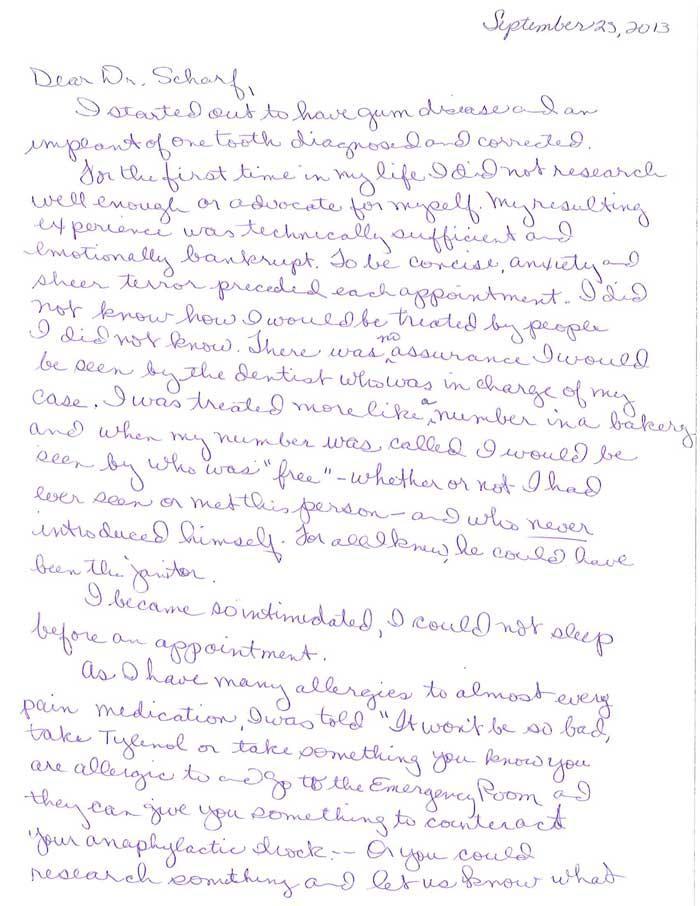 September 23, 2013
Dear Dr. Scharf,
I started out to have gum disease and an
implant of one tooth diagnosed and corrected.
For the first time in my life I did not research
well enough or advocate for myself. My resulting
experience was technically sufficient and
emotionally bankrupt. To be concise, anxiety and
sheer terror preceded each appointment. I did
not know how I would be treated by people
I did not know. There was no assurance I would
be seen by the dentist who was in charge of my
case. I was treated more like a number in a bakery
and when my number was called I would be
seen by who was "free" - whether or not I had
ever seen or met this person - and who never
introduced himself. For all I knew, he could have
been the janitor.
I became so intimidated, I could not sleep
before an appointment.
As I have many allergies to almost every
pain medication, I was told "It won't be so bad,
take Tylenol or take something you know you
are allergic to and go to the Emergency Room and
they can give you something to counteract
your anaphylactic shock. -- Or you could
research something and let us know what